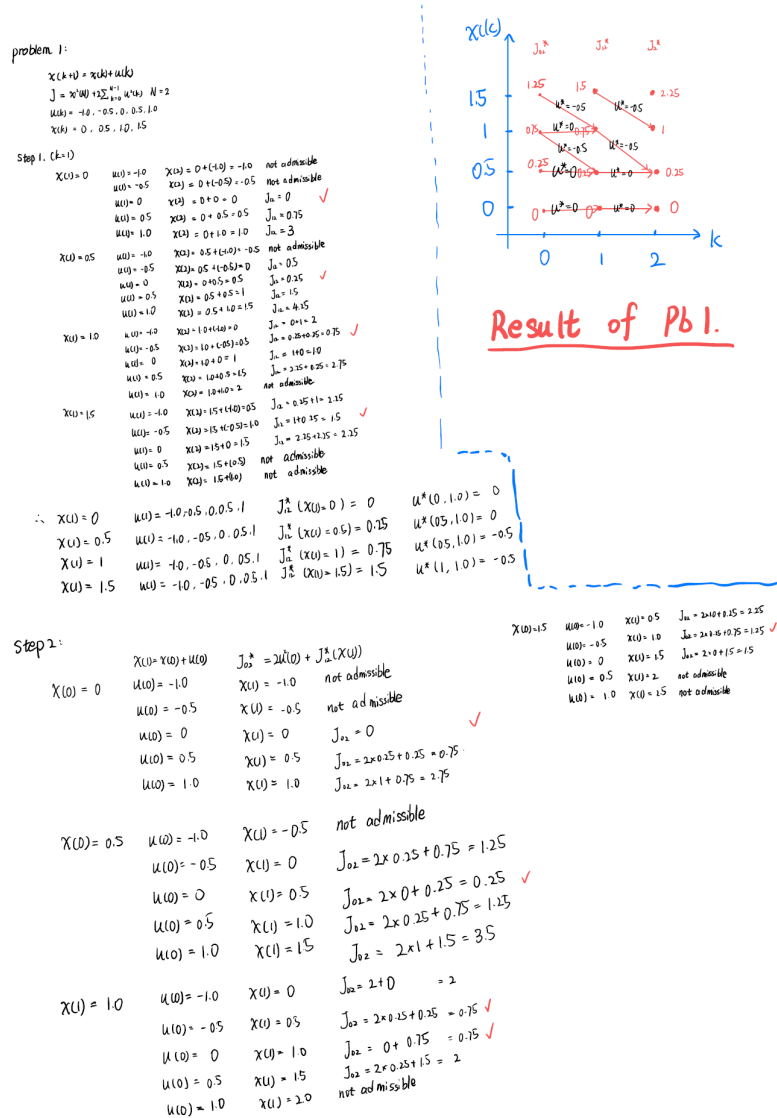 problem 1:
x(k+1) = x(k)+u(k)
J = x²(N) + 2∑ᴺ⁻¹ₖ₌₀ u²(k) N=2
u(k) = -1.0, -0.5, 0, 0.5, 1.0
x(k) = 0, 0.5, 1.0, 1.5
Step 1. (k=1)
x(1)=0 u(1)=-1.0 x(2)=0+(-1.0)=-1.0 not admissible
u(1)=-0.5 x(2)=0+(-0.5)=-0.5 not admissible
u(1)=0 x(2)=0+0=0 J₁₂=0 ✓
u(1)=0.5 x(2)=0+0.5=0.5 J₁₂=0.75
u(1)=1.0 x(2)=0+1.0=1.0 J₁₂=3
x(1)=0.5 u(1)=-1.0 x(2)=0.5+(-1.0)=-0.5 not admissible
u(1)=-0.5 x(2)=0.5+(-0.5)=0 J₁₂=0.5
u(1)=0 x(2)=0+0.5=0.5 J₁₂=0.25 ✓
u(1)=0.5 x(2)=0.5+0.5=1 J₁₂=1.5
u(1)=1.0 x(2)=0.5+1.0=1.5 J₁₂=4.25
x(1)=1.0 u(1)=-1.0 x(2)=1.0+(-1.0)=0 J₁₂=0+1=2
u(1)=-0.5 x(2)=1.0+(-0.5)=0.5 J₁₂=0.25+0.25=0.75 ✓
u(1)=0 x(2)=1.0+0=1 J₁₂=1+0=1.0
u(1)=0.5 x(2)=1.0+0.5=1.5 J₁₂=2.25+0.25=2.75
u(1)=1.0 x(2)=1.0+1.0=2 not admissible
x(1)=1.5 u(1)=-1.0 x(2)=1.5+(-1.0)=0.5 J₁₂=0.25+1=2.25
u(1)=-0.5 x(2)=1.5+(-0.5)=1.0 J₁₂=1+0.25=1.5 ✓
u(1)=0 x(2)=1.5+0=1.5 J₁₂=2.25+2.25=2.25
u(1)=0.5 x(2)=1.5+(0.5) not admissible
u(1)=1.0 x(2)=1.5+(1.0) not admissible
∴ x(1)=0 u(1)=-1.0,-0.5,0,0.5,1 J₁₂*(x(1)=0)=0 u*(0,1.0)=0
x(1)=0.5 u(1)=-1.0,-0.5,0,0.5,1 J₁₂*(x(1)=0.5)=0.25 u*(0.5,1.0)=0
x(1)=1 u(1)=-1.0,-0.5,0,0.5,1 J₁₂*(x(1)=1)=0.75 u*(0.5,1.0)=-0.5
x(1)=1.5 u(1)=-1.0,-0.5,0,0.5,1 J₁₂*(x(1)=1.5)=1.5 u*(1,1.0)=-0.5
x(k)
J₀₂* J₁₂* J₂*
1.5 1.25 1.5 2.25
u*=-0.5 u*=-0.5
1 0.75 u*=0 0.75 1
u*=-0.5 u*=-0.5
0.5 0.25 u*=0 0.25 u*=0 0.25
0 0 u*=0 0 u*=0 0
0 1 2 k
Result of Pb 1.
Step 2:
x(1)=x(0)+u(0) J₀₂*=2u²(0)+J₁₂*(x(1))
x(0)=0 u(0)=-1.0 x(1)=-1.0 not admissible
u(0)=-0.5 x(1)=-0.5 not admissible
u(0)=0 x(1)=0 J₀₂=0 ✓
u(0)=0.5 x(1)=0.5 J₀₂=2×0.25+0.25=0.75
u(0)=1.0 x(1)=1.0 J₀₂=2×1+0.75=2.75
x(0)=0.5 u(0)=-1.0 x(1)=-0.5 not admissible
u(0)=-0.5 x(1)=0 J₀₂=2×0.25+0.75=1.25
u(0)=0 x(1)=0.5 J₀₂=2×0+0.25=0.25 ✓
u(0)=0.5 x(1)=1.0 J₀₂=2×0.25+0.75=1.25
u(0)=1.0 x(1)=1.5 J₀₂=2×1+1.5=3.5
x(1)=1.0 u(0)=-1.0 x(1)=0 J₀₂=2+0=2
u(0)=-0.5 x(1)=0.5 J₀₂=2×0.25+0.25=0.75 ✓
u(0)=0 x(1)=1.0 J₀₂=0+0.75=0.75 ✓
u(0)=0.5 x(1)=1.5 J₀₂=2×0.25+1.5=2
u(0)=1.0 x(1)=2.0 not admissible
x(0)=1.5 u(0)=-1.0 x(1)=0.5 J₀₂=2×1.0+0.25=2.25
u(0)=-0.5 x(1)=1.0 J₀₂=2×0.25+0.75=1.25 ✓
u(0)=0 x(1)=1.5 J₀₂=2×0+1.5=1.5
u(0)=0.5 x(1)=2 not admissible
u(0)=1.0 x(1)=2.5 not admissible